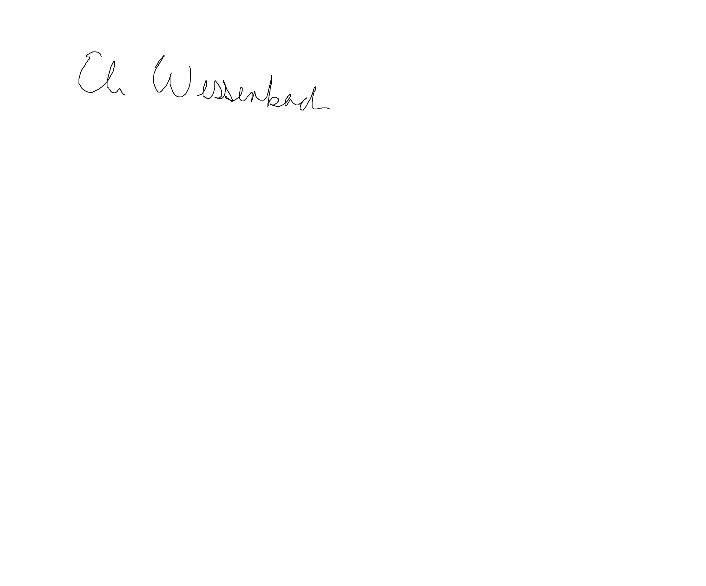 Ch Wessenbach